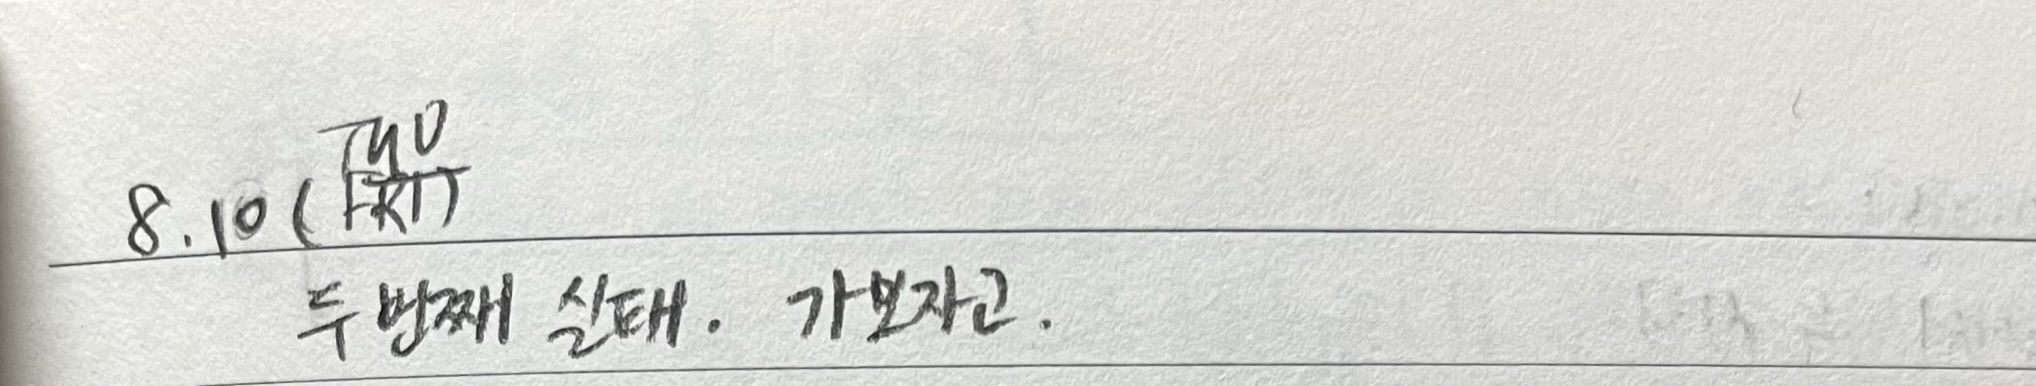 8.10(FRI)
두번째 실태. 가보자고.